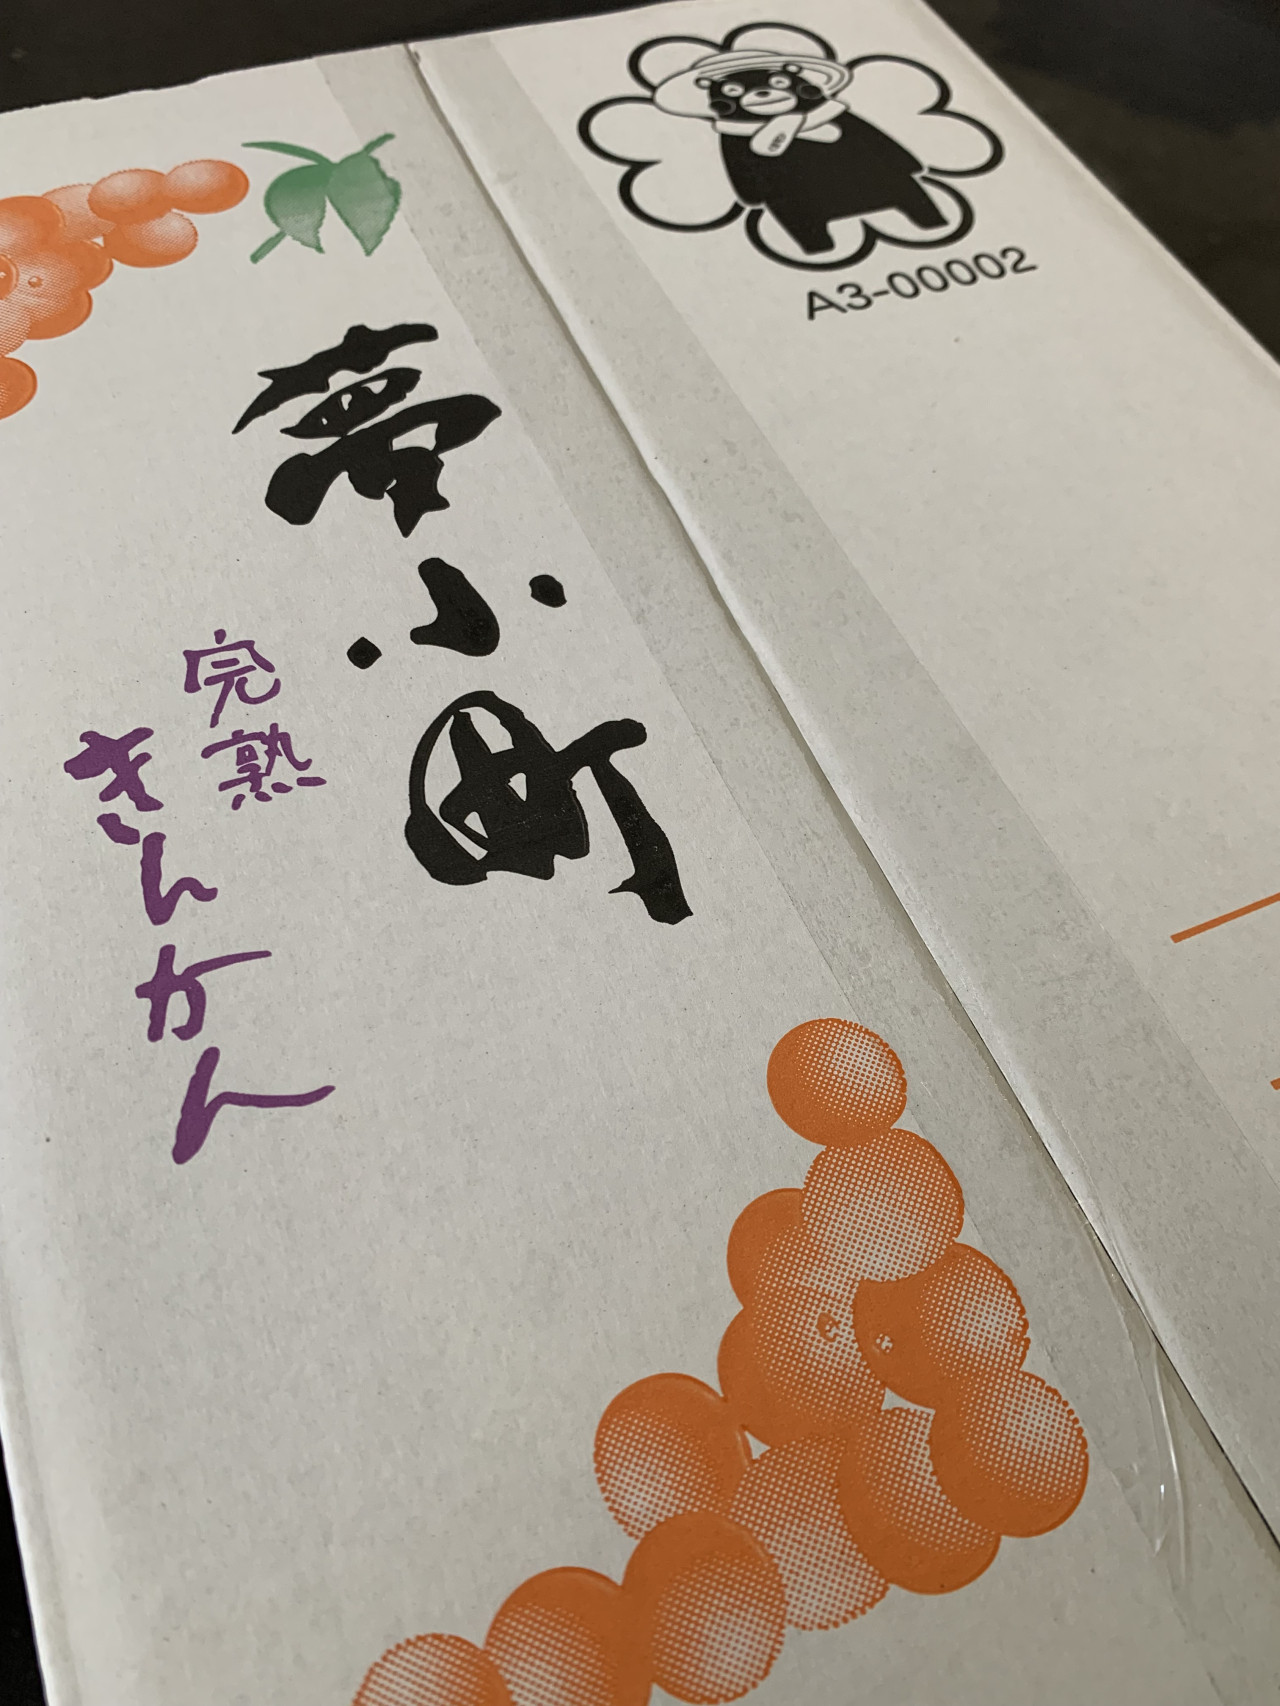 夢小町
完熟
きんかん
A3-00002